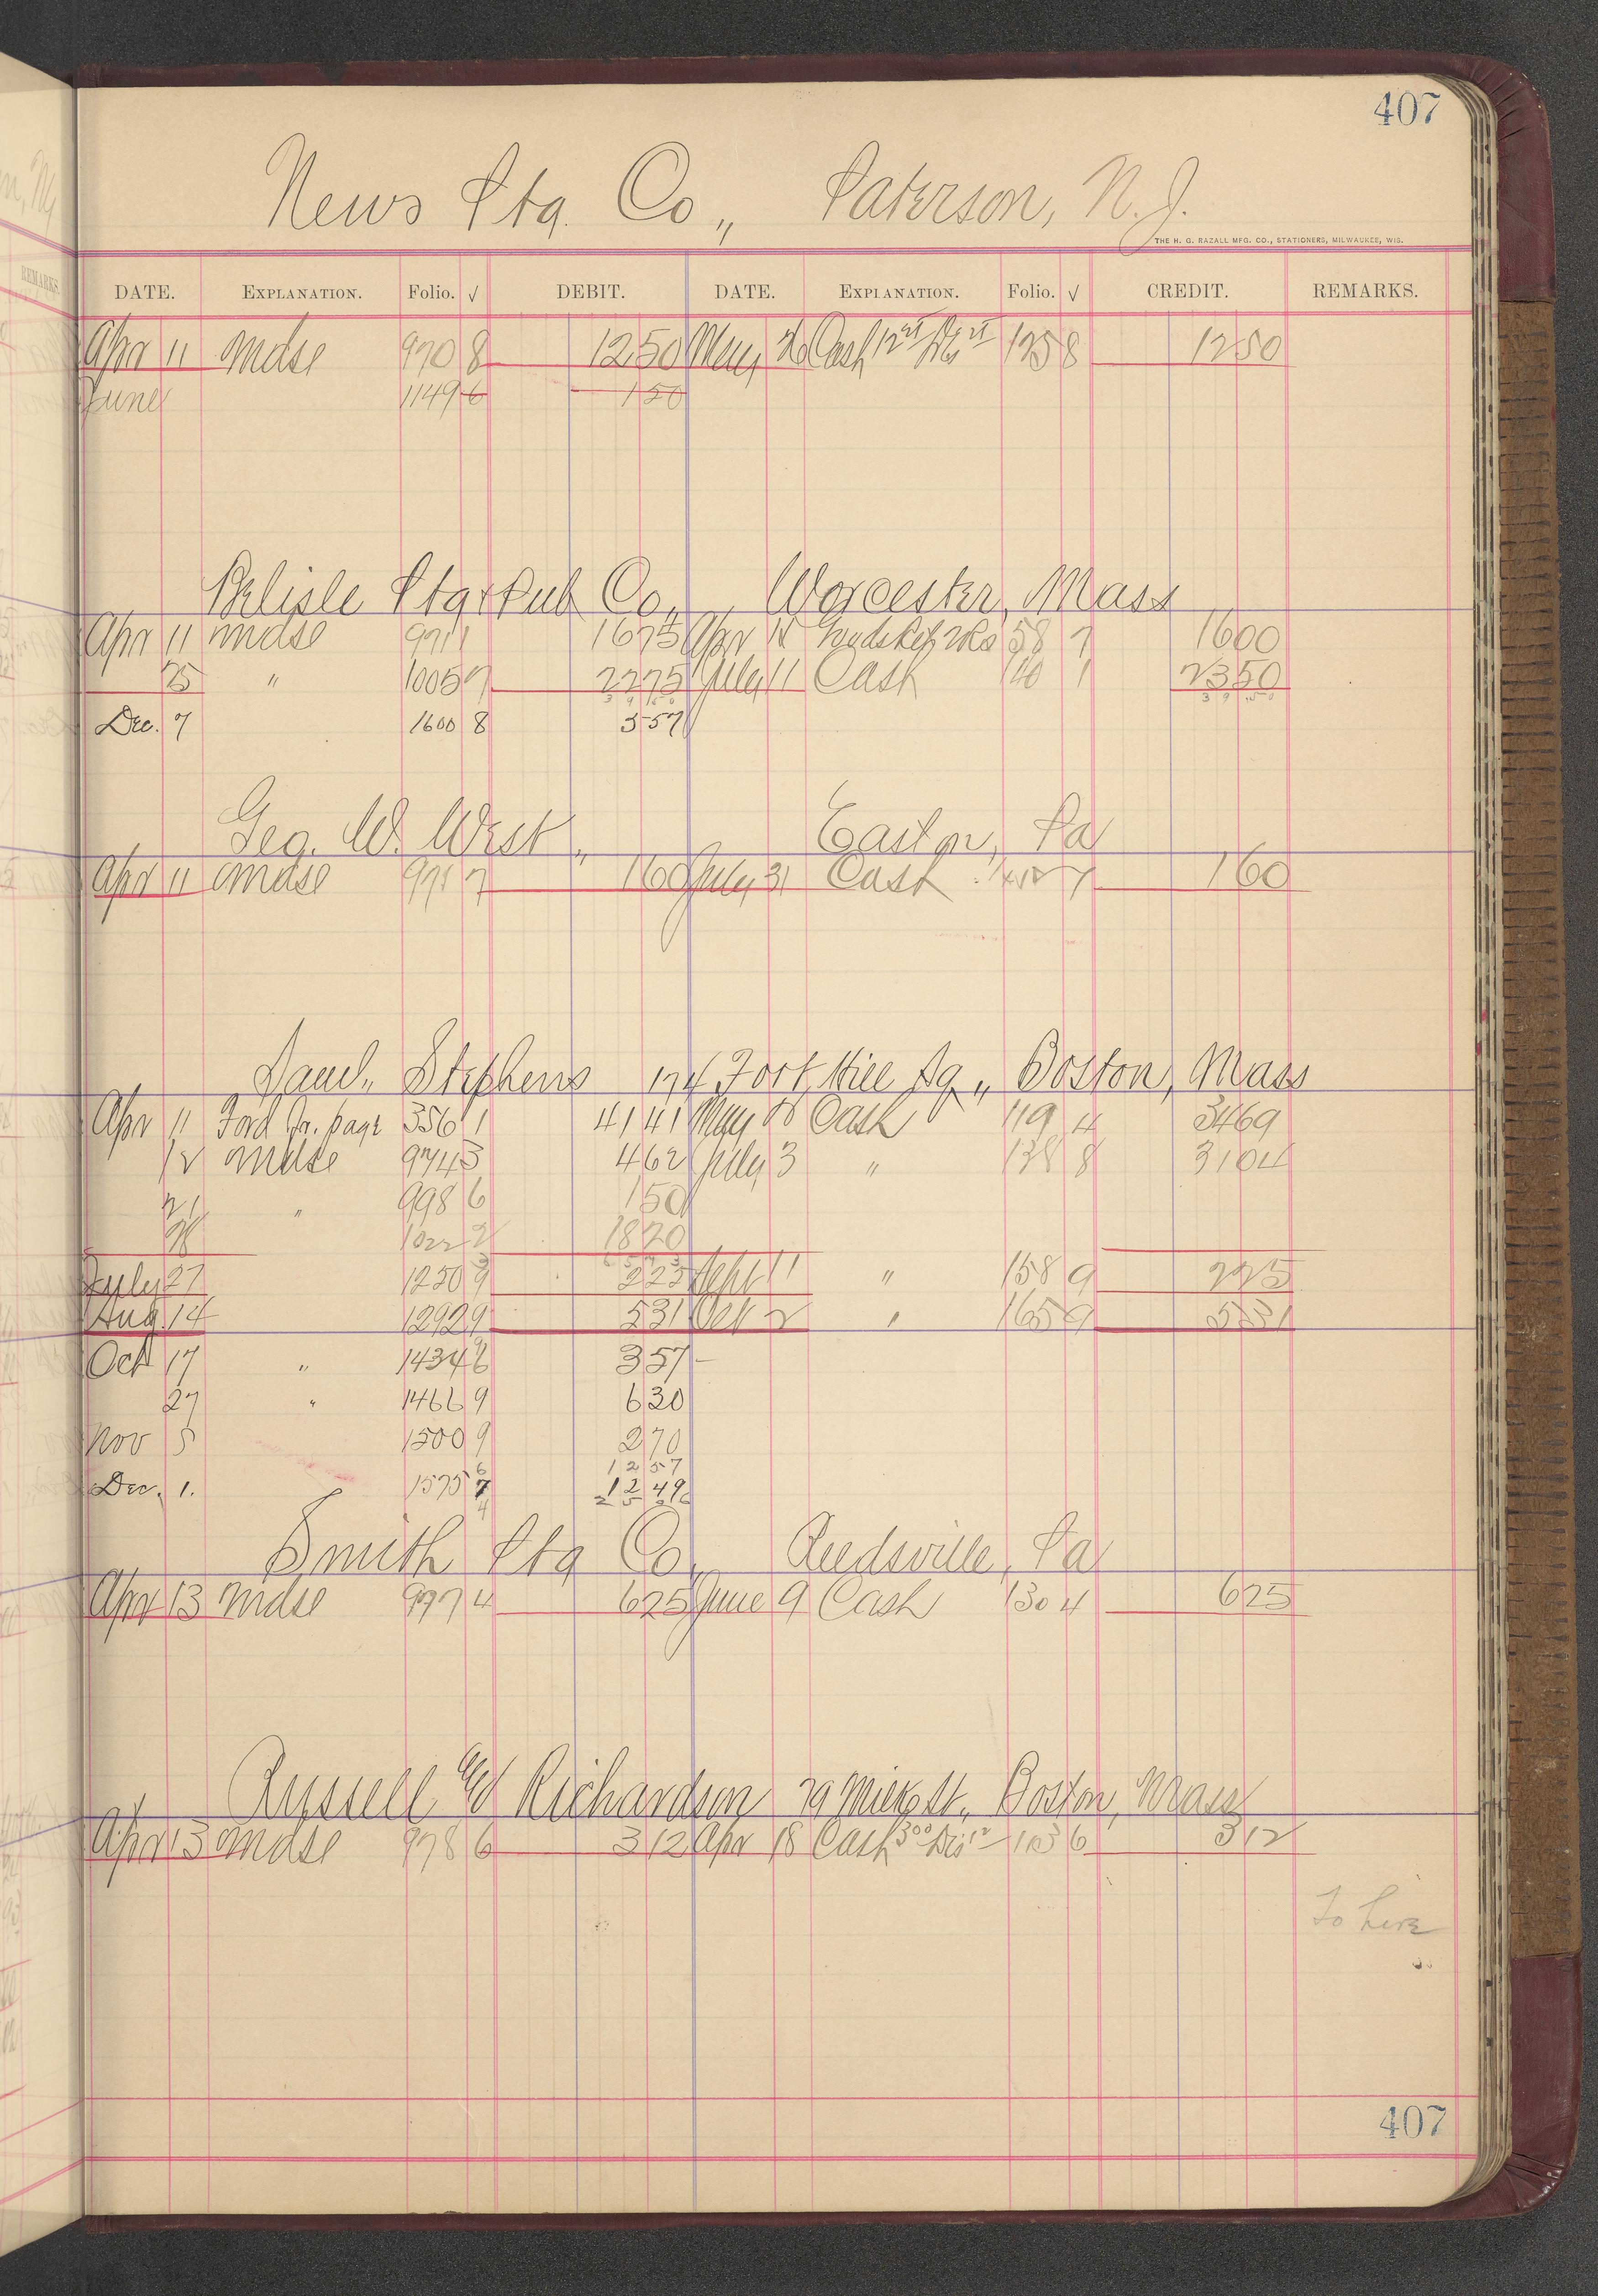 407
News Ptg. Co., Paterson, N.J.
THE H. G. RAZALL MFG. CO., STATIONERS, MILWAUKEE, WIS.
DATE. EXPLANATION. Folio. √ DEBIT. DATE. EXPLANATION. Folio. √ CREDIT. REMARKS.
Apr 11 Mdse 970 8 12 50 May 26 Cash 12 25 Dis 25 125 8 12 50
June 1149 6 1 50
Belisle Ptg & Pub Co., Worcester, Mass
Apr 11 Mdse 971 1 16 75 Apr 14 58 7 16 00
25 " 1005 7 22 75 July 11 Cash 140 1 23 50
39 50 39 50
Dec. 7 1600 8 3 57
Geo. W. West, Easton, Pa
Apr 11 Mdse 971 7 1 60 July 31 Cash 7 1 60
Saml. Stephens 174 Fort Hill Sq., Boston, Mass
Apr 11 Ford Jr. page 356 1 41 41 May Cash 119 4 34 69
12 Mdse 974 3 4 62 July 3 " 138 8 31 04
21 " 998 6 1 50
28 1022 2 18 20
July 27 1250 9 2 25 Sept 11 " 158 9 2 25
Aug. 14 1292 9 5 31 Oct 2 " 165 9 5 31
Oct 17 " 1434 6 3 57
27 " 1466 9 6 30
Nov 5 1500 9 2 70
12 57
Dec. 1. 1575 7 12 49
25 06
Smith Ptg Co., Reedsville, Pa
Apr 13 Mdse 977 4 6 25 June 9 Cash 130 4 6 25
Russell Ed Richardson 79 Milk St., Boston, Mass
Apr 13 Mdse 978 6 3 12 Apr 18 Cash 3 00 Dis 12 103 6 3 12
To Live
407